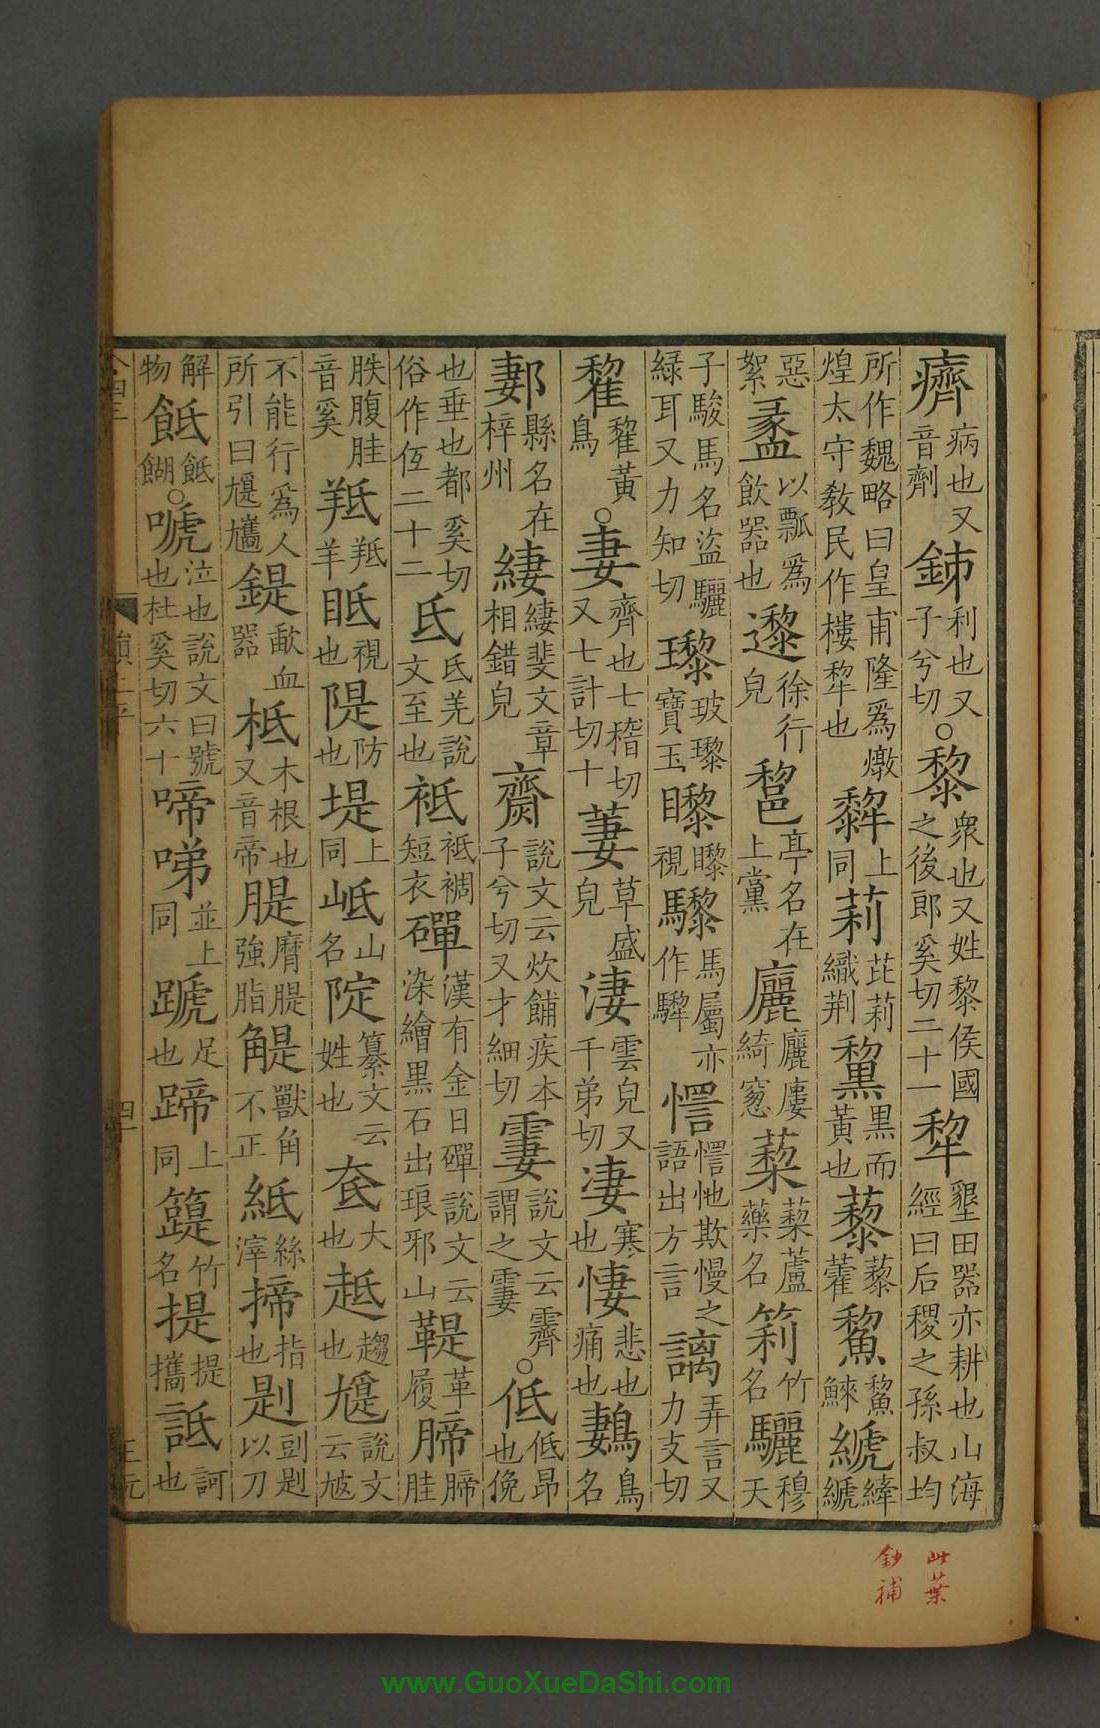 㿃病也又音劑䤠利也又子兮切○黎衆也又姓黎侯國之後郎奚切二十一犂墾田器亦耕也山海經曰后稷之孫叔均
所作魏略曰皇甫隆爲燉煌太守敎民作樓犂也犛上同莉茈莉織荆黧黑而黃也藜藜藿鯬鯬鯠𦃇縴𦃇
惡絮蠡以瓢爲飲器也邌徐行皃𨛫亭名在上黨廲廲廔綺窻蔾蔾蘆藥名筣竹名驪穆天
子駿馬名盜驪緑耳又力知切瓈玻瓈寶玉瞝瞝視騹馬屬亦作犂㦒㦒忚欺慢之語出方言謧弄言又力支切
鵹鵹黃鳥○妻齊也七稽切又七計切十萋草盛皃淒雲皃又千弟切凄寒也悽悲也痛也鶈鳥名
郪縣名在梓州緀緀斐文章相錯皃齌說文云炊餔疾本子兮切又才細切霋說文云霽謂之霋○低低昂也俛
也垂也都奚切俗作仾二十二氐氐羌說文至也袛袛裯短衣磾漢有金日磾說文云染繒黑石出琅邪山鞮革履腣腣胿
胅腹胿音奚羝羝羊眡視也隄防也堤上同岻山名阺纂文云姓也奃大也趆趨也㞜說文云尳
不能行爲人所引曰㞜𡰢鍉歃血器柢木根也又音帝䐎䐎䐎强脂觝獸角不正紙絲滓揥指也㓳剅㓳以刀
解物䬫䬫餬○嗁泣也說文曰號也杜奚切六十啼㖒並上同蹏足也蹄上同䈕竹名提提攜詆訶也
四
此葉
鈔補
www.GuoXueDaShi.com